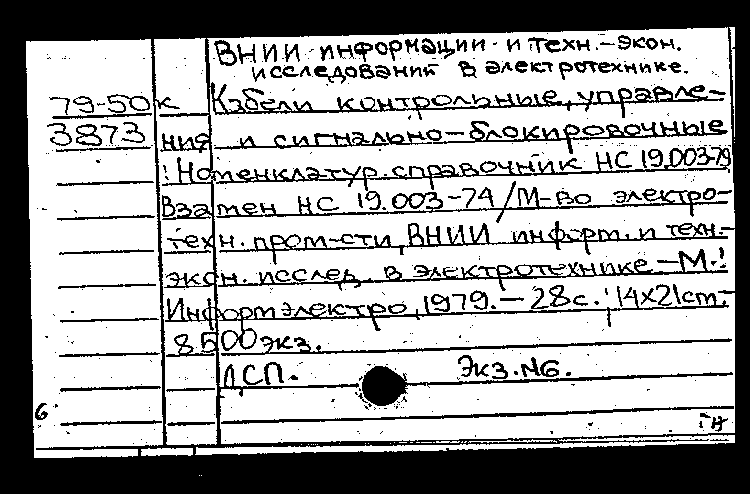 ВНИИ информации и техн.-экон.
исследований в электротехнике.
79-50к Кабели контрольные, управле-
3873 ния и сигнально-блокировочные
! Номенклатур. справочник НС 19.003-79
Взамен НС 19.003-74/М-во электро-
техн. пром-сти, ВНИИ информ. и техн.-
экон. исслед. в электротехнике.-М.!
Информэлектро, 1979.-28с.; 14х21ст.-
8500экз.
ДСП. Экз.№6.
6
ГН